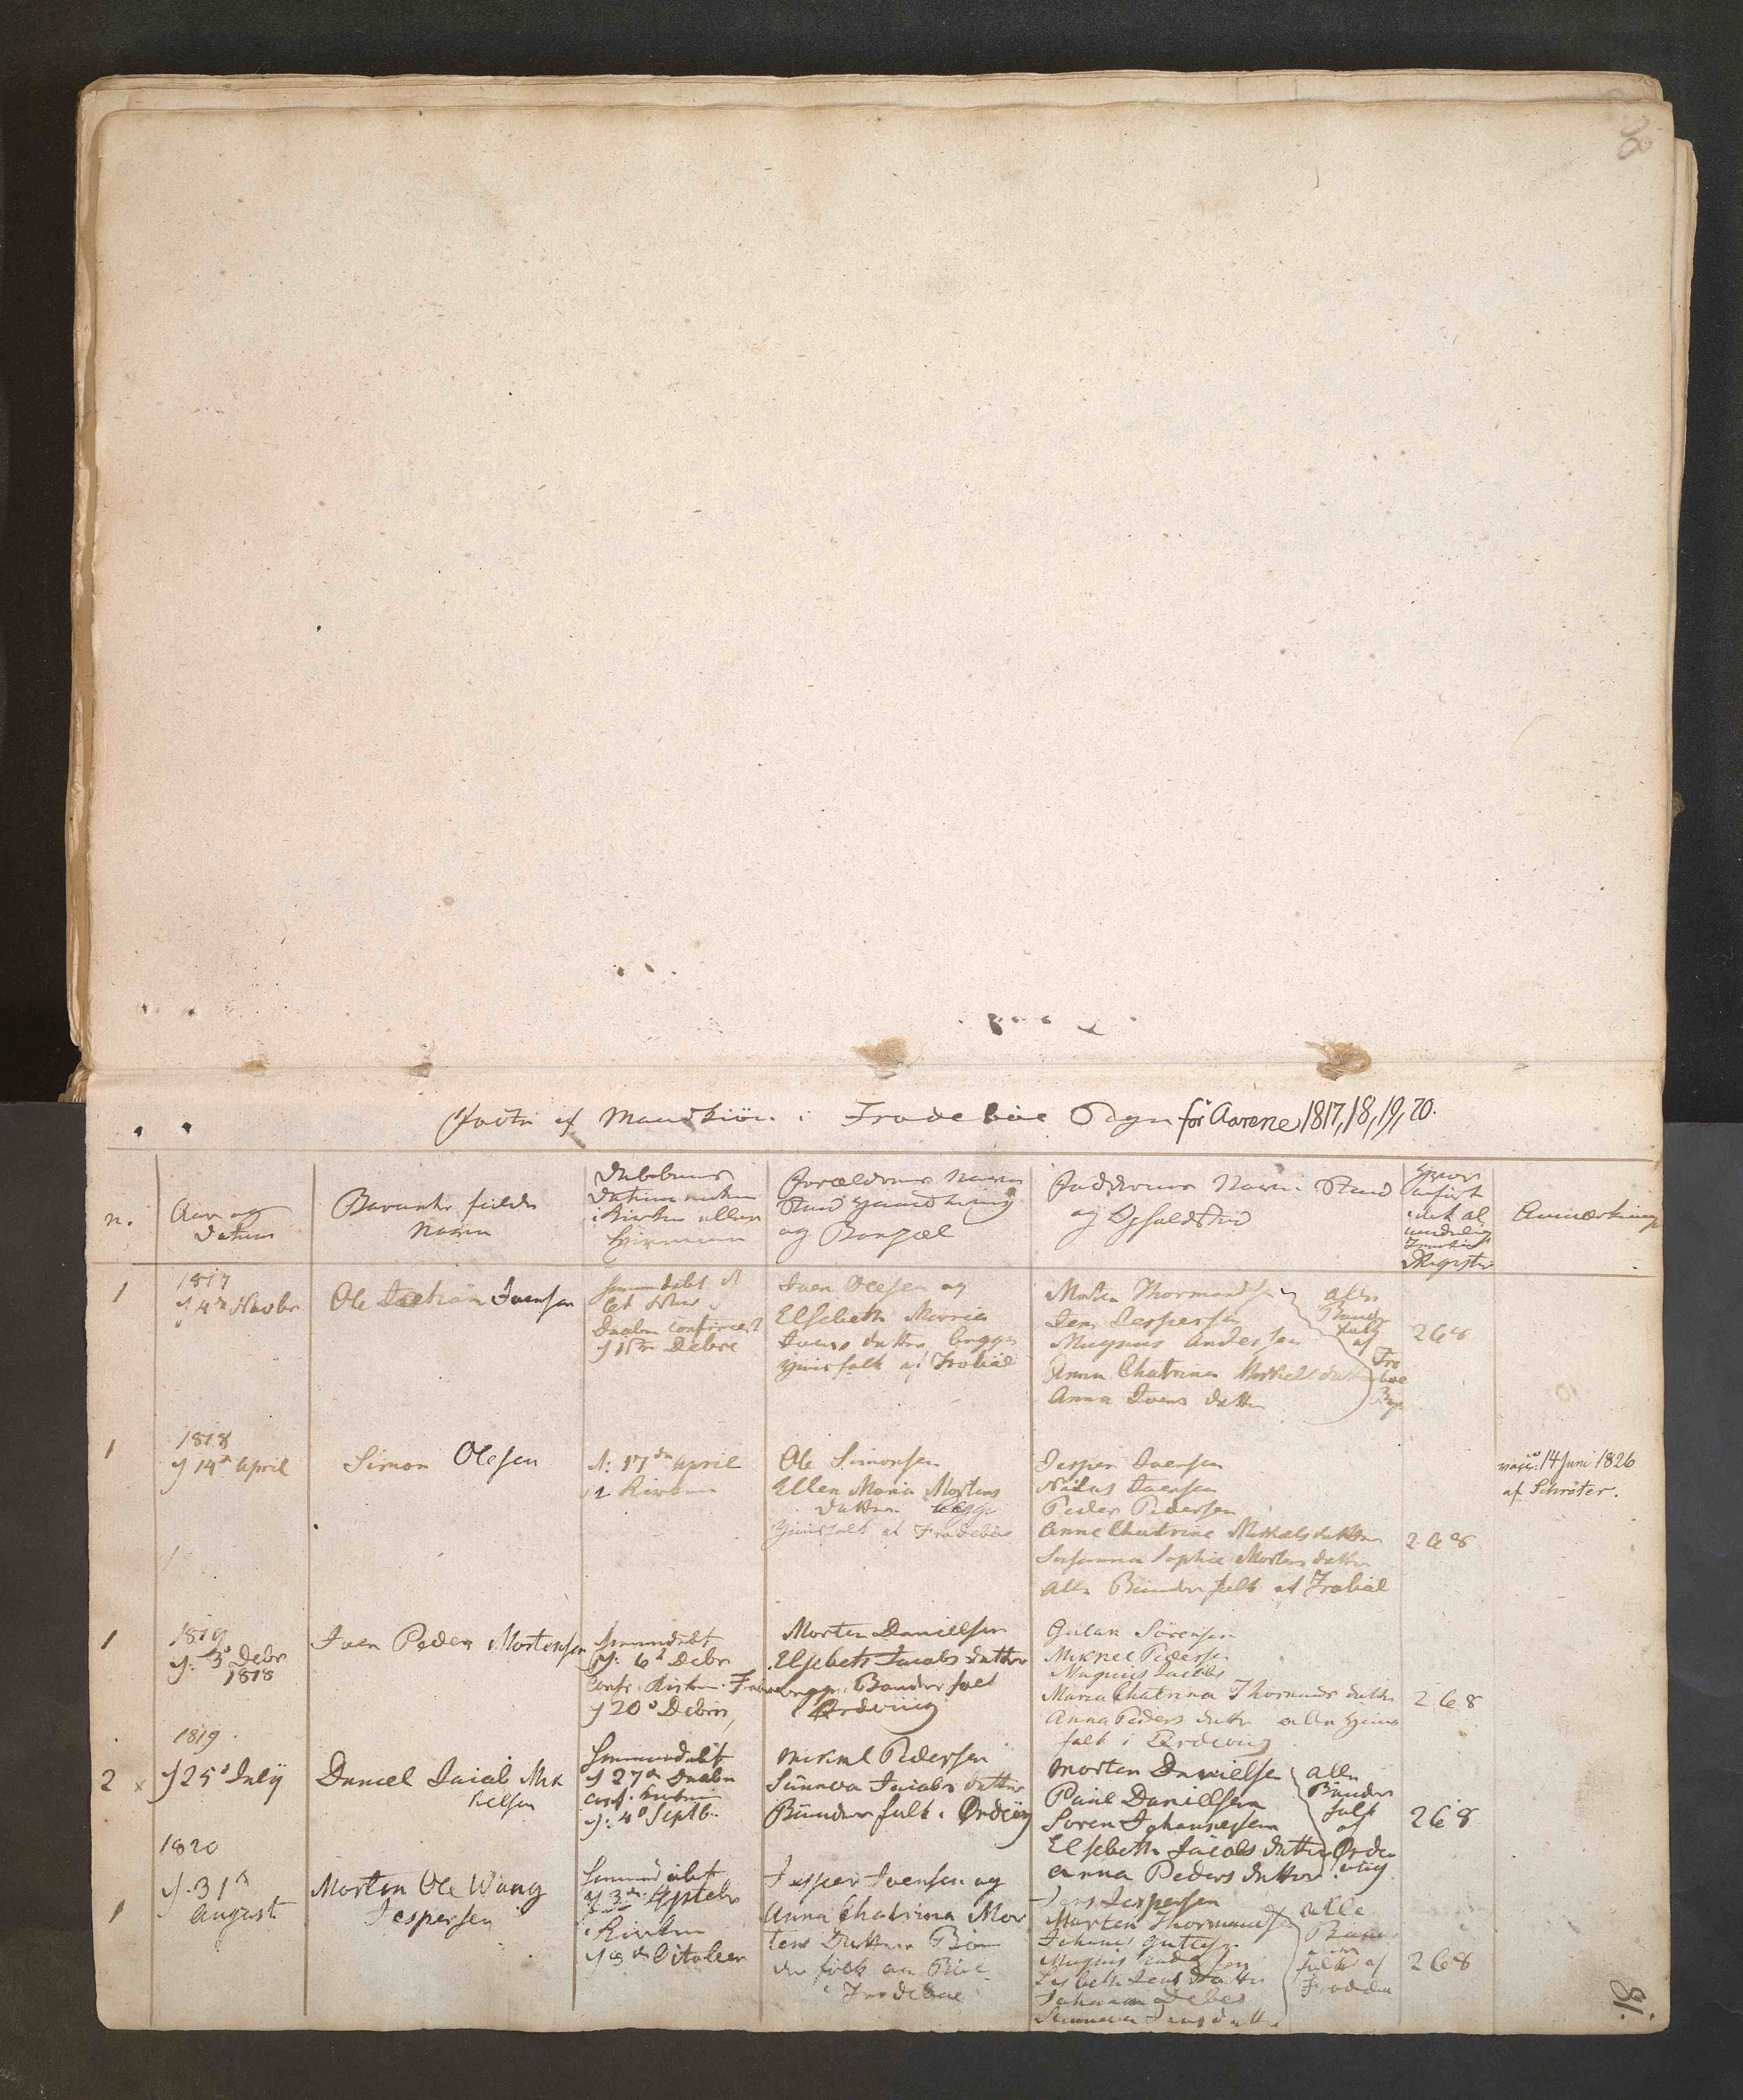 80
Fødte af Mandkiön i Frodeböe Sogn för Aarene 1817, 18, 19, 20.
n.
Aar og
Datum
Barnets fulde
Navn
Daabens
Datum enten
i Kirken eller
Hiemme
Forældrenes Navn
Stand Handtering
og Bopæl
Faddernes Navn Stand
og Opholdsted
Hvor
anført
i det al
mindelige
Register
Anmærkning
1
1817
d 4de Novbr
Ole Joensen
hiemmedøbt d
Daaben confirmert
Debre
Joen Olesen og
Elsebeth Marria
Joens datter begge
huusfolk af
Morten Thormondsen
Jens Jespersen
Magnus Andersen
Anna Chatrina Mikkels datter
Anna Joens datter
alle
Bønder
folk
af
Fro
böe
Byg
268
1
1818
d 14de April
Simon Olesen
d: 17de April
i Kirken
Ole Simonsen
Ellen Maria Mortens
datter begge
huusfolk af Frodeböe
Jesper Joensen
Niclas Joensen
Peder Pedersen
Anne Chatrine Mikkels datter
Susanna Sophie Mortens datter
alle Bønder folk af
268
vacc: 14 Juni 1826
af Schröter.
1
1819
d: 3de Debr
1818
Joen Peder Mortensen
hiemmedøbt
d: 6te Debr
Conf. Kirken
d 20de Debrs,
Morten Danielsen
Elsebeth Jacobs datter
begge Bønder folk
Ørdeviig
Gulak Sörensen
Mikkel Pedersen
Magnus Jacobs
Maria Chatrina Thormonds datter
Anna Peders datter alle huus
folk i Ördeviig
268
1819
2 x
d 25de Julÿ
Daniel Jacob Mik
kelsen
hiemmedøbt
d 27de Daaben
conf. Kirken
d: 4de Septb.
Mikkel Pedersen
Sünneva Jacobs datter
Bünder folk i Ördevig
Morten Danielsen
Paul Danielsen
Sören Johannesen
Elsebeth Jacobs datter
Anna Peders datter
alle
Bünder
folk
af
Örde
viig
268
1820
1
d. 31te
August
Morten Ole Wang
Jespersen
hiemmedøbt
d 3de Septebr
Kirken
Octobeer
Jesper Joensen og
Anna Chatrina Mor
tens Datter Bøn
der folk
i Frodeböe
Jens Jespersen
Morten Thormondsen
Johanes
Magnus Andersen
Lisbeth Jens datter
Johanna Debes
Sünneva Jens datter
alle
Bøn
der
folk af
268
81.